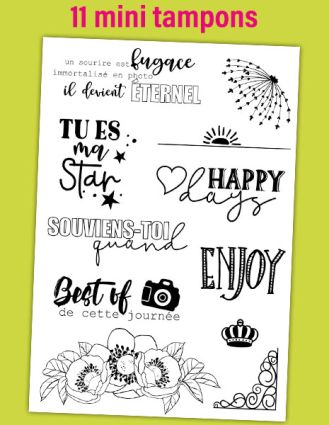 11 mini tampons
un sourire est fugace
immortalisé en photo
il devient ÉTERNEL
TU ES
ma
Star
HAPPY
days
SOUVIENS-TOI
quand
ENJOY
Best of
de cette journée